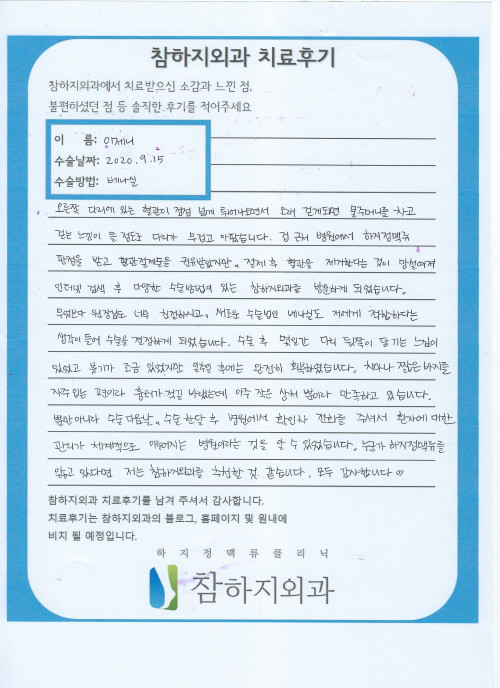 참하지외과 치료후기
참하지외과에서 치료받으신 소감과 느낀 점,
불편하셨던 점 등 솔직한 후기를 적어주세요
이 름: 이제니
수술날짜: 2020. 9. 15
수술방법: 베나실
오른쪽 다리에 있는 혈관이 점점 넓게 튀어나오면서 오래 걷게되면 물주머니를 차고
걷는 느낌이 들 정도로 다리가 무겁고 아팠습니다. 집 근처 병원에서 하지정맥류
판정을 받고 혈관절제술을 권유받았지만, 절제 후 혈관을 제거한다는 것이 망설여져
인터넷 검색 후 다양한 수술방법이 있는 참하지외과를 방문하게 되었습니다.
무엇보다 원장님도 너무 친절하시고, 새로운 수술법인 베나실도 저에게 적합하다는
생각이 들어 수술을 결정하게 되었습니다. 수술 후 몇일간 다리 뒤쪽이 당기는 느낌이
있었고 붓기가 조금 있었지만 일주일 후에는 완전히 회복하였습니다. 치마나 짧은 바지를
자주 입는 편이라 흉터가 적길 바랬는데 아주 작은 상처 뿐이라 만족하고 있습니다.
뿐만 아니라 수술 다음날, 수술 한달 후 병원에서 확인차 전화를 주셔서 환자에 대한
관리가 체계적으로 이루어지는 병원이라는 것을 알 수 있었습니다. 누군가 하지정맥류를
앓고 있다면 저는 참하지외과를 추천할 것 같습니다. 모두 감사합니다 ♡
참하지외과 치료후기를 남겨 주셔서 감사합니다.
치료후기는 참하지외과의 블로그, 홈페이지 및 원내에
비치 될 예정입니다.
하 지 정 맥 류 클 리 닉
참하지외과